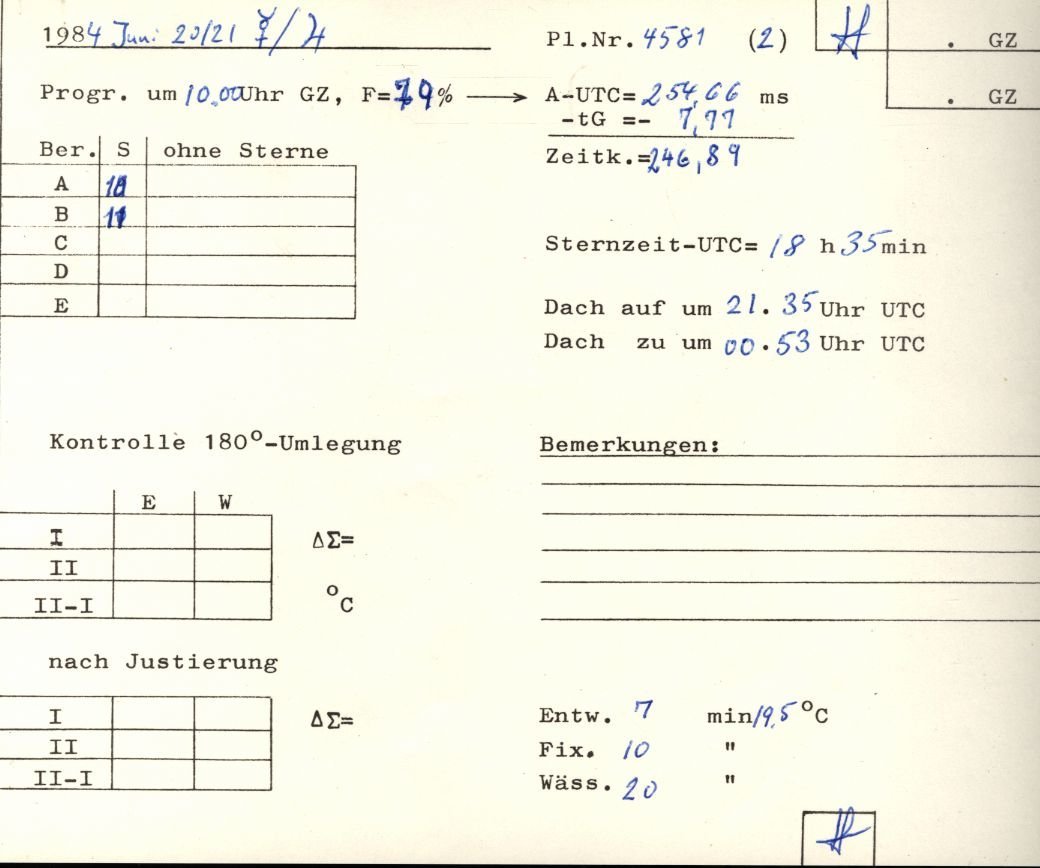 1984 Juni 20/21 ☿/♃
Pl.Nr. 4581 (2)
. GZ
. GZ
Progr. um 10.00 Uhr GZ, F=79% ⟶ A-UTC= 254,66 ms
-tG =- 7,77
Zeitk.=246,89
Ber. S ohne Sterne
A
B 11
C
D
E
Sternzeit-UTC= 18 h 35 min
Dach auf um 21.35 Uhr UTC
Dach zu um 00.53 Uhr UTC
Kontrolle 180°-Umlegung
E W
I
II
II-I
ΔΣ=
°C
Bemerkungen:
nach Justierung
I
II
II-I
ΔΣ=
Entw. 7 min/19,5 °C
Fix. 10 "
Wäss. 20 "